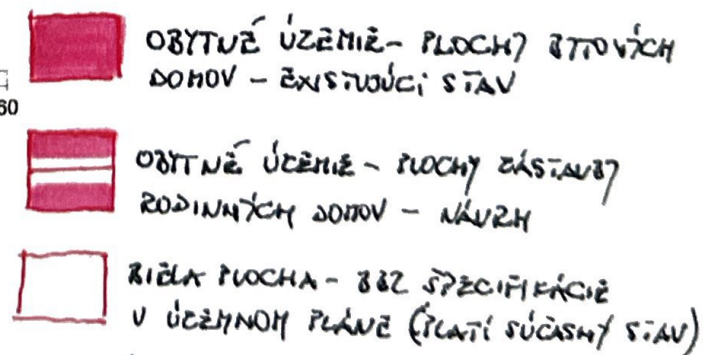 OBYTNÉ ÚZEMIE - PLOCHY BYTOVÝCH
DOMOV - EXISTUJÚCI STAV
60
OBYTNÉ ÚZEMIE - PLOCHY ZÁSTAVBY
RODINNÝCH DOMOV - NÁVRH
BIELA PLOCHA - BEZ ŠPECIFIKÁCIE
V ÚZEMNOM PLÁNE (PLATÍ SÚČASNÝ STAV)